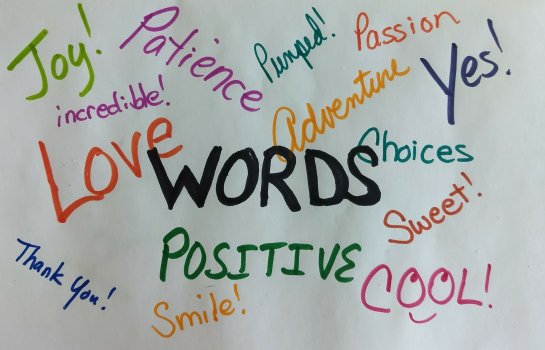 Joy!
Patience
Pumped!
Passion
Yes!
incredible!
Adventure
Love
WORDS
Choices
Sweet!
POSITIVE
Thank You!
Smile!
COOL!